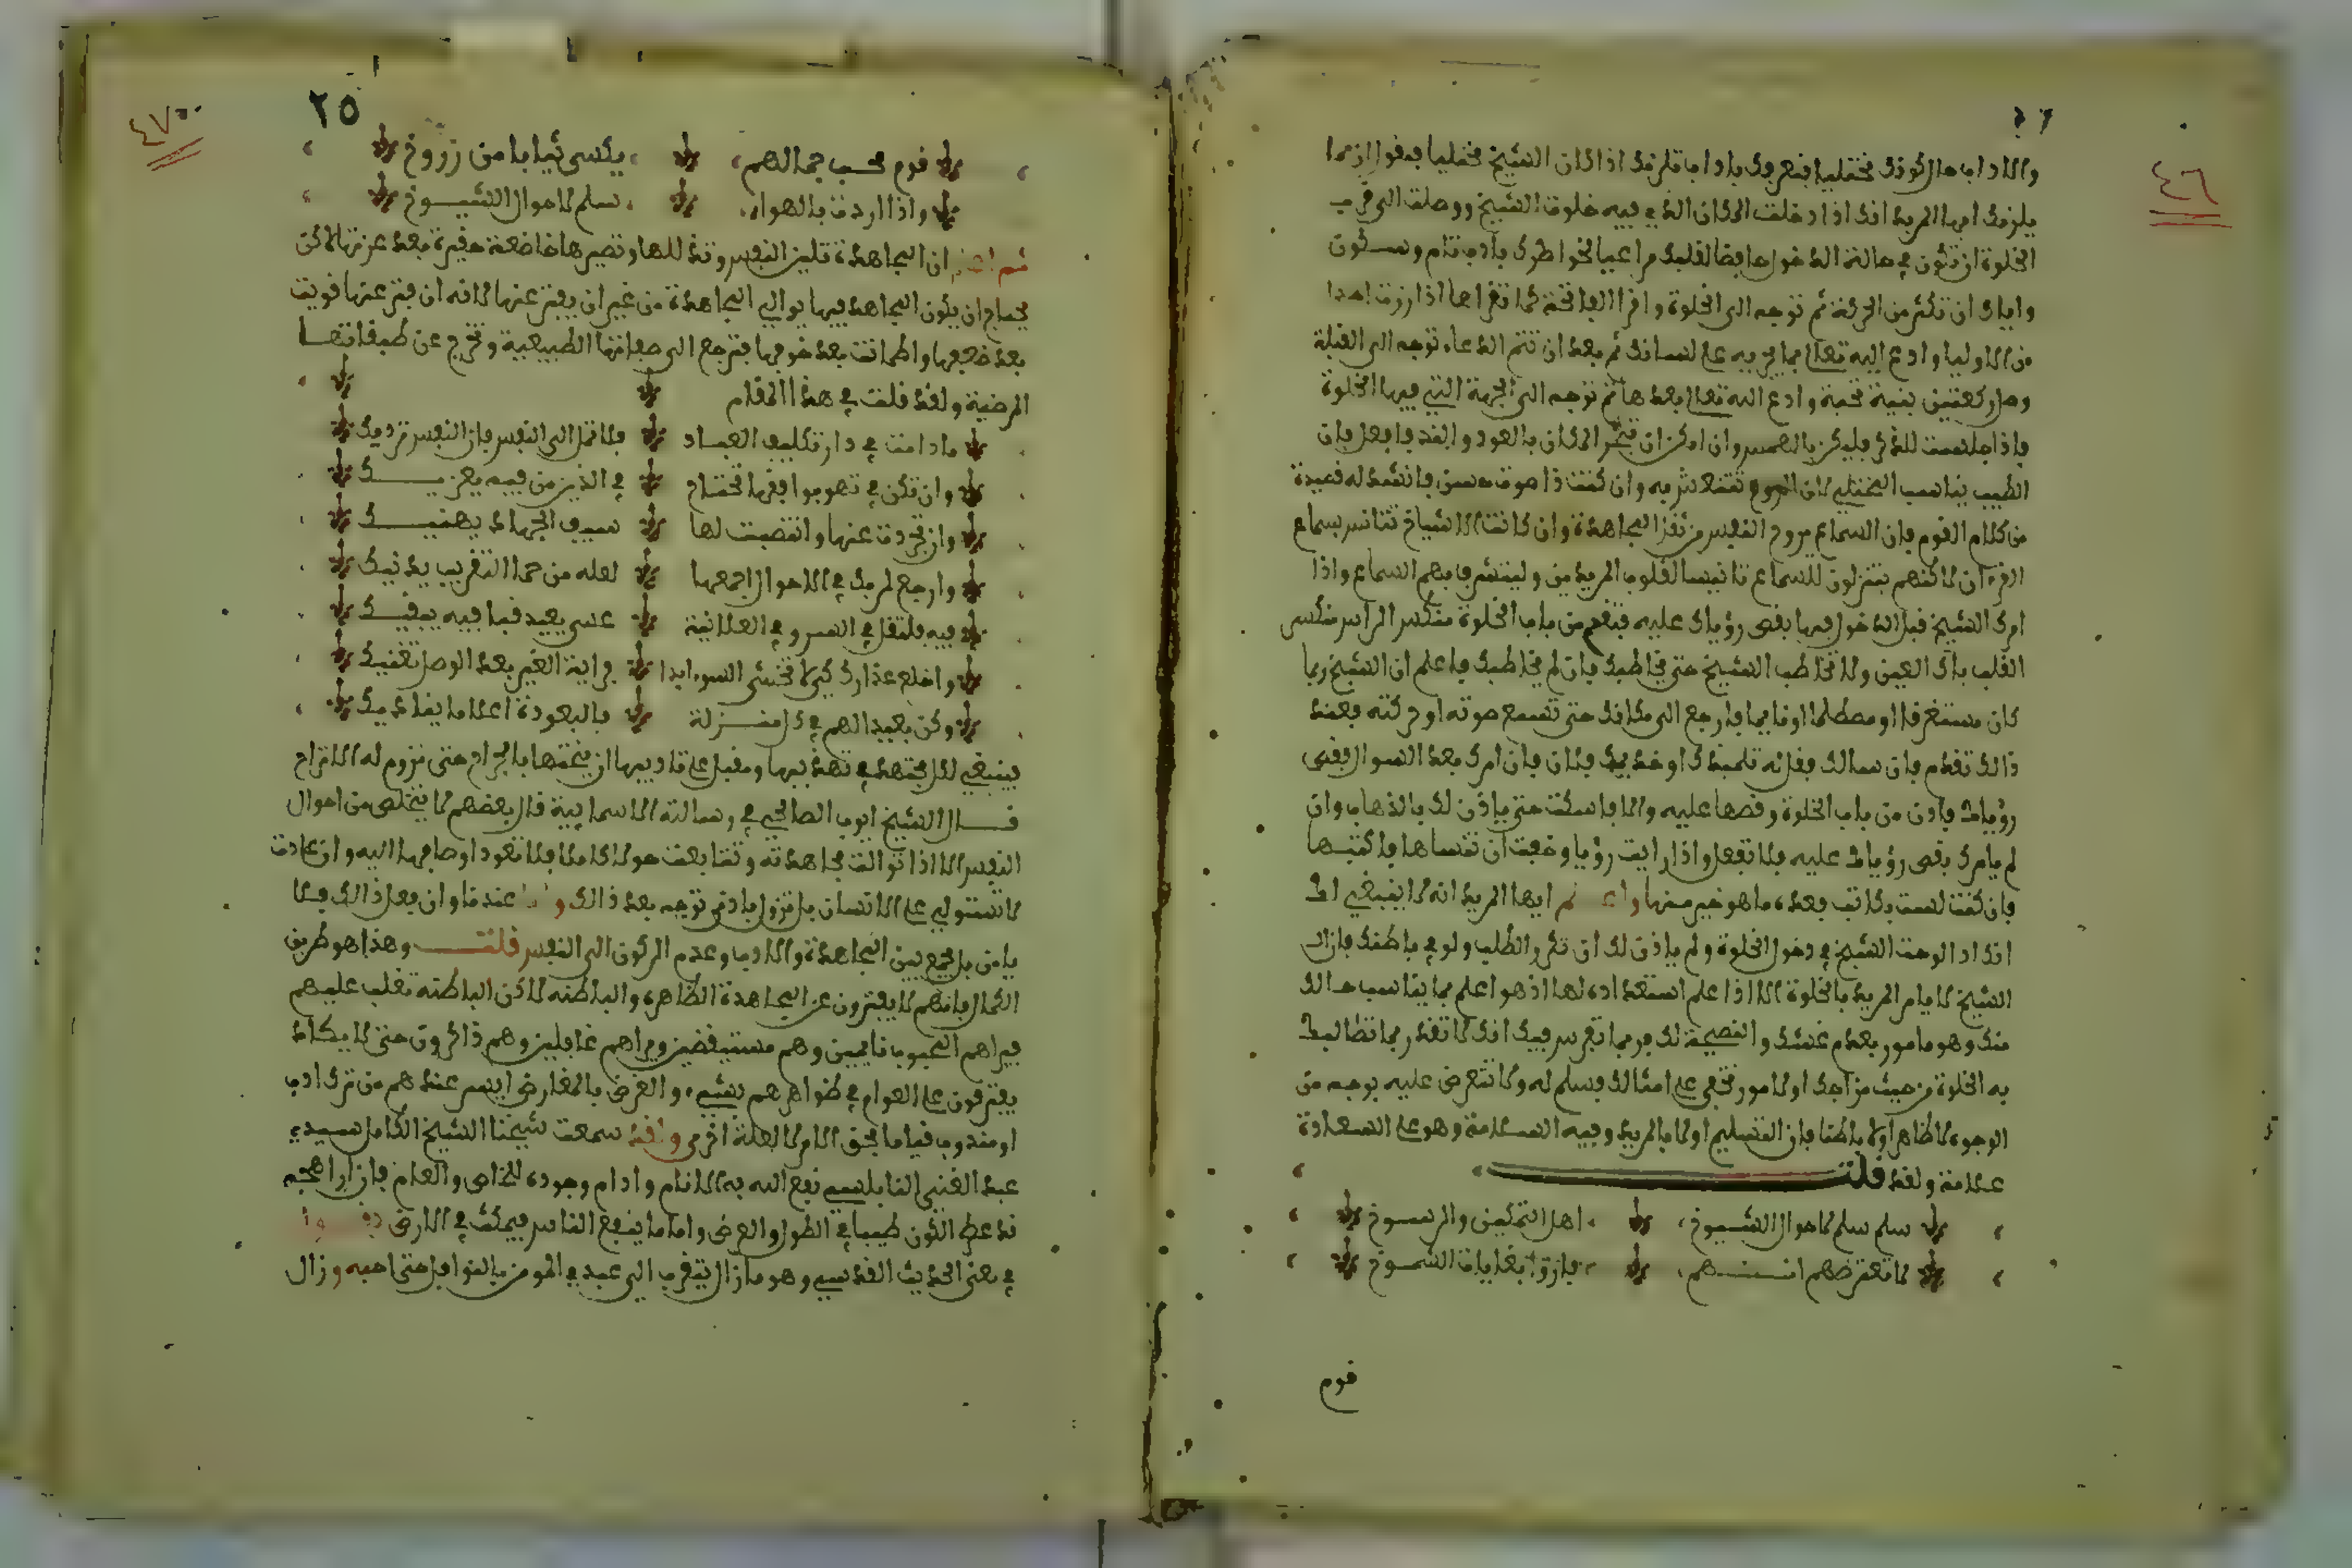 ٤٦
والاداب حال كونك مختليا فنعرفك باداب تلزمك اذا كان الشيخ مختليا فنقول ان مما
يلزمك ايها المريد انك اذا دخلت المكان الذي فيه خلوة الشيخ ووصلت الى قرب
الخلوة ان تكون في حالة الدخول حافظا لقلبك مراعيا لخواطرك بادب تام وسكون
واياك ان تكثر من الحركة ثم توجه الى الخلوة واقرا الفاتحة كما تقراها اذا زرت احدا
من الاوليا وادع الله تعالى بما يجريه على لسانك ثم بعد ان تتم الدعاء توجه الى القبلة
وصل ركعتين بنية تحية وادع الله تعالى بعدها ثم توجه الى الجهة التي فيها الخلوة
فاذا جلست للذكر فليكن بالهمس وان امكن ان تبخر المكان بالعود والند فافعل فان
الطيب يناسب المختلي لان الروح تنتعش به وان كنت ذا صوت حسن فانشد له قصيدة
من كلام القوم فان السماع يروح النفس من ثقل المجاهدة وان كانت الاشياخ تتانس بسماع
القرءان لاكنهم يتنزلون للسماع تانيسا لقلوب المريدين وليتشرف بهم السماع واذا
امرك الشيخ قبل الدخول فيها بقص رؤياك عليه فتقدم من باب الخلوة منكس الراس منكسر
القلب باك العين ولا تخاطب الشيخ حتى يخاطبك فان لم يخاطبك فاعلم ان الشيخ ربما
كان مستغرقا او مصطلما او نايما فارجع الى مكانك حتى تسمع صوته او حركته فعند
ذالك تقدم فان سالك فقل له تلميذك او خديمك فلان فان امرك بعد السوال بقص
رؤياك فادن من باب الخلوة وقصها عليه والا فاسكت حتى ياذن لك بالذهاب وان
لم يامرك بقص رؤياك عليه فلا تفعل واذا رايت رؤيا وخفت ان تنساها فاكتبها
فان كنت لست بكاتب فعده ما هو خير منها واعلم ايها المريد انه لا ينبغي لك
انك اذا راودت الشيخ في دخول الخلوة ولم ياذن لك ان تكرر الطلب ولو في باطنك فان
الشيخ لا يامر المريد بالخلوة الا اذا علم استعداده لها اذ هو اعلم بما يناسب حالك
منك وهو مامور بعدم غشك والنصيحة لك فربما تفرس فيك انك لا تقدر بما تطالبك
به الخلوة من حيث مزاجك او لامور تخفى على امثالك فسلم له ولا تتعرض عليه بوجه من
الوجوه لا ظاهرا ولا باطنا فان التسليم اولا بالمريد وفيه السلامة وهو على السعادة
علامة ولقد قلت
سلم سلم لاحوال الشيوخ اهل التمكين والرسوخ
لا تعترضهم انهم فازوا بغايات الشموخ
قوم
٤٧
٢٥
قوم بحسب جمالهم يكسى ثيابا من زروخ
واذا اردت بالهواء سلم لاحوال الشيوخ
ثم اعلم ان المجاهدة تلين النفس وتذللها وتصيرها خاضعة حقيرة بعد عزتها لاكن
يحتاج ان يكون المجاهد فيها يوالي المجاهدة من غير ان يفتر عنها لانه ان فتر عنها قويت
بعد ضعفها واطمانت بعد خوفها فترجع الى صفاتها الطبيعية وتخرج عن طبقاتها
المرضية ولقد قلت في هذا المقام
مادامت في دار تكليف العباد فلا تمل الى النفس فان النفس ترديك
وان تكن في تهو يوافقها تحتاج في الذين من فيه يعزيك
وان تجردت عنها وانتضيت لها سيف الجهاد يهنيك
وارجع لربك في الاحوال اجمعها لعله من حما التقريب يدنيك
فيه فلتفن في السر وفي العلانية عسى يعيد فنا فيه يبقيك
واخلع عذارك كي لا تخشى السوء ابدا فراية الغير بعد الوصل تغنيك
وكن بعيد الهم في كل منزلة فالبعودة اعلا ما يفاديك
فينبغي لكل مجتهد في تهذيبها ومقبل على تاديبها ان يمنعها بالجراح حتى تروم له الاتراح
قال الشيخ ايوب الصالحي في رسالته الاسمايية قال بعضهم لا يتخلص من احوال
النفس الا اذا توالت مجاهدته وتتابعت حولا كاملا فلا تعود اوصافها اليه وان عادت
لا تستولي على الانسان بل تزول بادنى توجه بعد ذالك واما عندنا وان فعل ذالك فلا
يامن بل يجمع بين المجاهدة والادب وعدم الركون الى النفس قلت وهذا هو طريق
الكمال فانهم لا يفترون عن المجاهدة الظاهرة والباطنه لاكن الباطنه تغلب عليهم
فيراهم المحبوب نايمين وهم مستيقضين ويراهم غافلين وهم ذاكرون حتى لا يكاد
يفترقون على العوام في ظواهرهم بشيء والقرض بالمقارض ايسر عندهم من ترك ادب
او مندوب فيا ما يحق الامر لا لعلة اخرى ولقد سمعت شيخنا الشيخ الكامل سيدي
عبد الغني النابلسي نفع الله به الانام وادام وجوده للخاص والعام فان ابراهيم
قد عطر الكون طيبا في الطول والعرض واما ما ينفع الناس فيمكث في الارض
في معنى الحديث القدسي وهو ما زال يتقرب الى عبدي المومن بالنوافل حتى احبه وزال